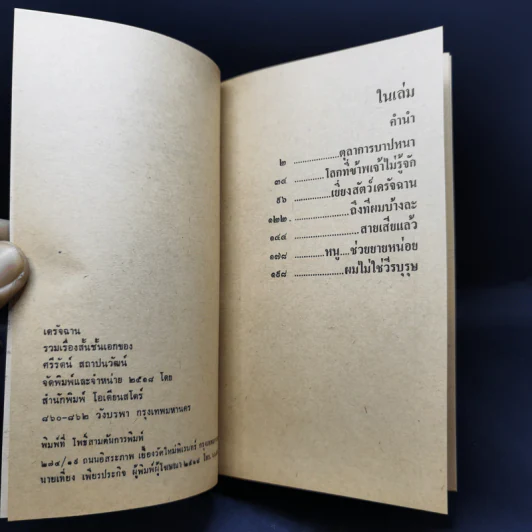 เดรัจฉาน
รวมเรื่องสั้นชั้นเอกของ
ศรีรัตน์ สถาปนวัฒน์
จัดพิมพ์และจำหน่าย ๒๕๑๘ โดย
สำนักพิมพ์ โอเดียนสโตร์
๘๖๐-๘๖๒ วังบูรพา กรุงเทพมหานคร
พิมพ์ที่ โพธิ์สามต้นการพิมพ์
๒๗๕/๑๙ ถนนอิสรภาพ
นายเที่ยง เพียรประกิจ ผู้พิมพ์ผู้โฆษณา
ในเล่ม
คำนำ
๒ ................ตุลาการบาปหนา
๓๔ ..........โลกที่ข้าพเจ้าไม่รู้จัก
๙๖ ............เยี่ยงสัตว์เดรัจฉาน
๑๒๒ ....................ถึงที่ผมบ้างละ
๑๔๔ ........................สายเสียแล้ว
๑๗๘ ..........หนู....ช่วยยายหน่อย
๑๙๘ ....................ผมไม่ใช่วีรบุรุษ